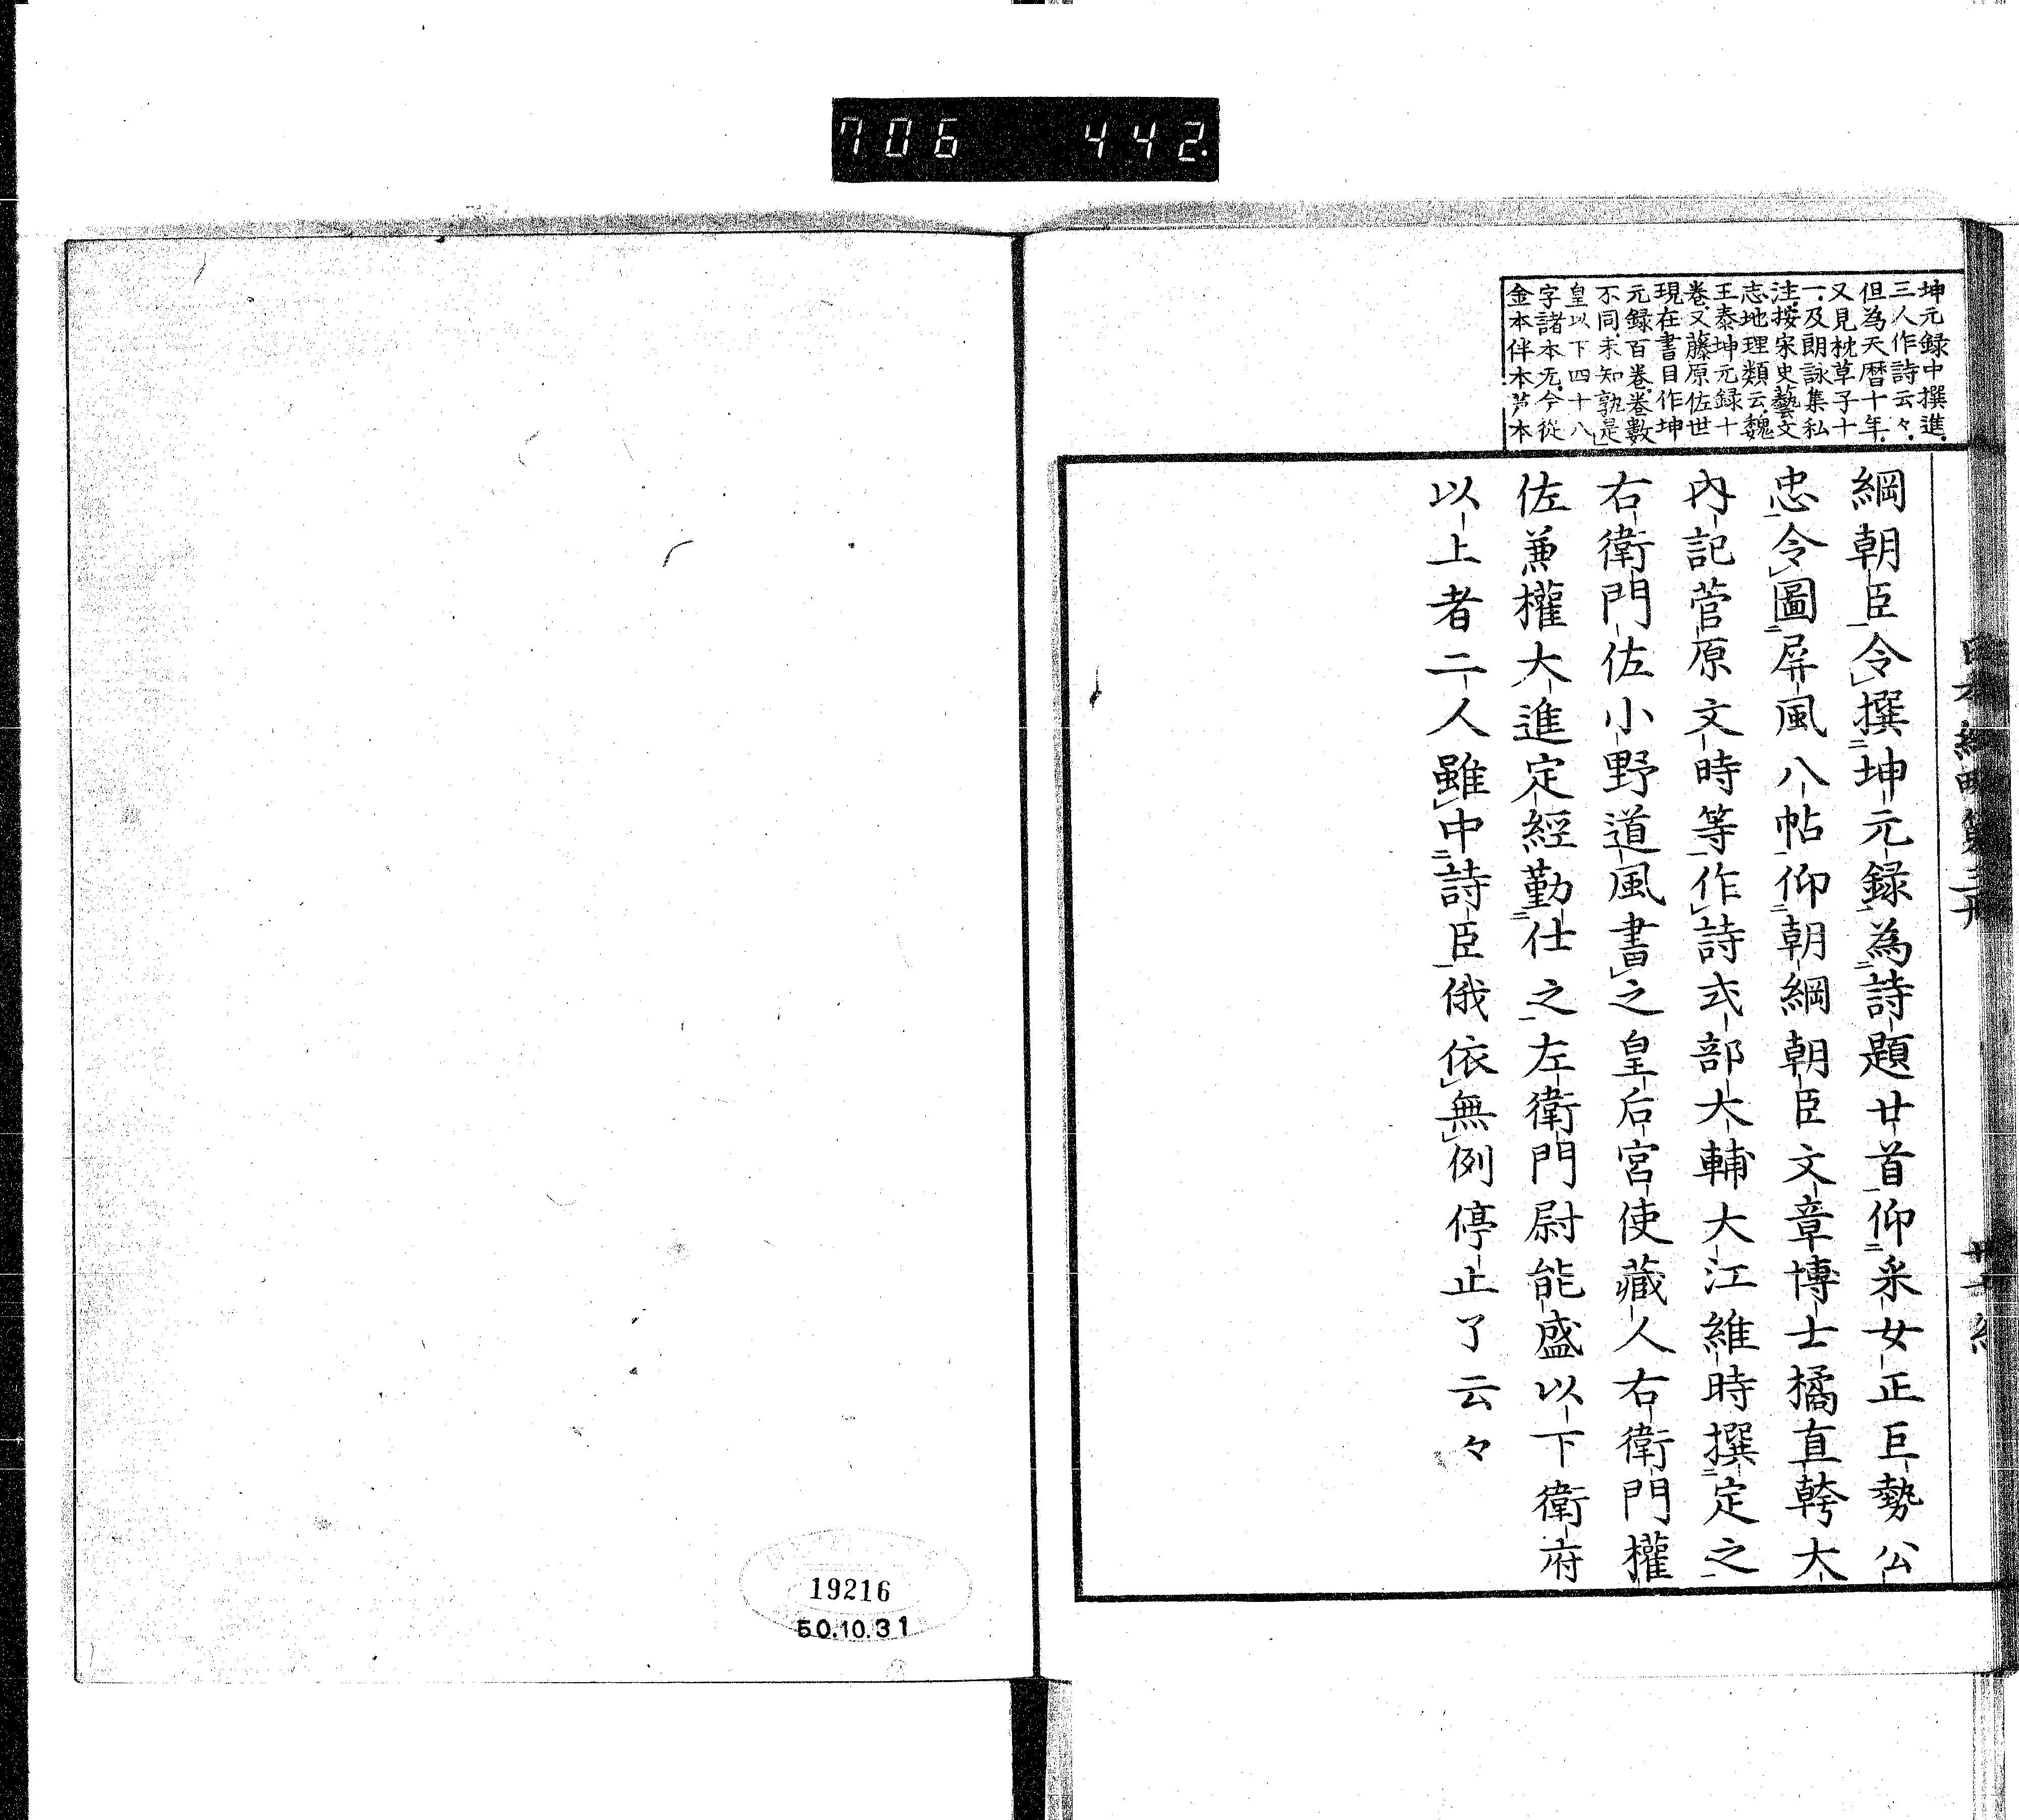 706 442
坤元録中撰進
三人作詩云々
但為天暦十年
又見枕草子十
一及朗詠集私
注按宋史藝文
志地理類云魏
王泰坤元録十
卷又藤原佐世
現在書目作坤
元録百卷卷數
不同未知孰是
皇以下四十八
字諸本无今從
金本伴本芦本
綱朝臣令撰坤元録為詩題廿首仰釆女正巨勢公
忠令圖屏風八帖仰朝綱朝臣文章博士橘直幹大
內記菅原文時等作詩式部大輔大江維時撰定之
右衛門佐小野道風書之皇后宮使藏人右衛門權
佐兼權大進定經勤仕之左衛門尉能盛以下衛府
以上者二人雖中詩臣俄依無例停止了云々
19216
50.10.31